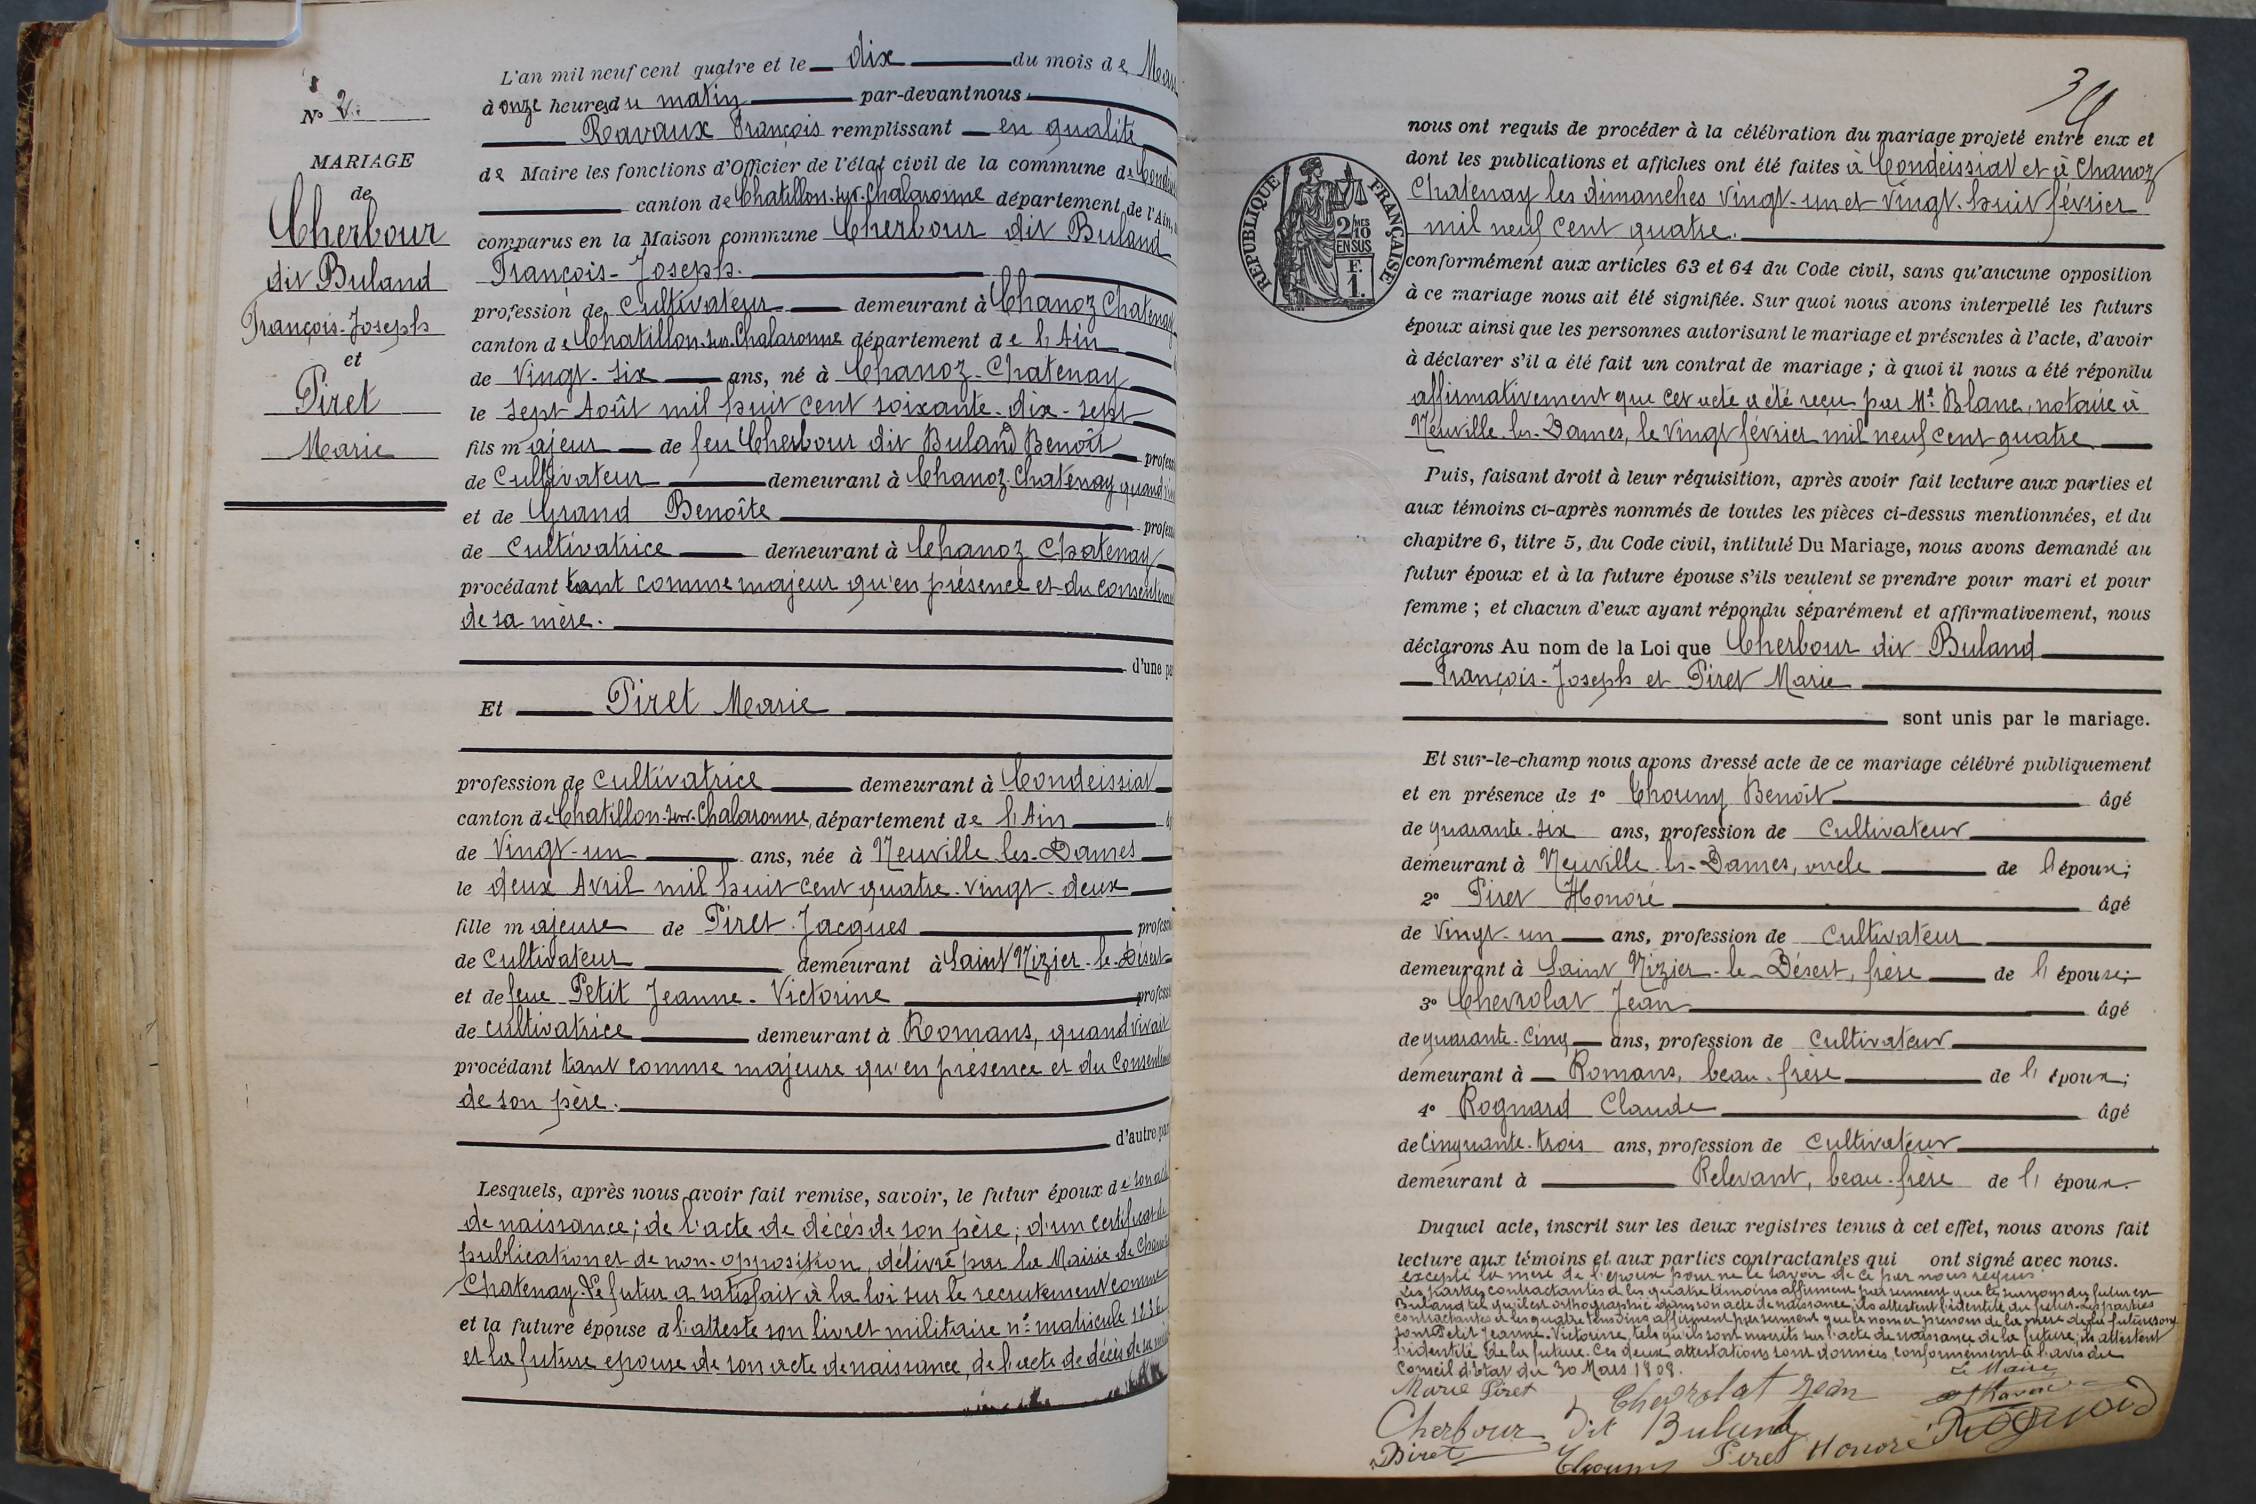 N° 2.
MARIAGE
de
Cherbour
dit Buland
François-Joseph
et
Piret
Marie
L'an mil neuf cent quatre et le dix du mois de
à onze heures du matin par-devant nous
Ravaux François remplissant en qualité
de Maire les fonctions d'Officier de l'état civil de la commune de
canton de Chatillon-sur-Chalaronne département de l'Ain,
comparus en la Maison commune Cherbour dit Buland
François-Joseph.
profession de Cultivateur demeurant à Chanoz Chatenay
canton de Chatillon-sur-Chalaronne département de l'Ain
de Vingt-six ans, né à Chanoz-Chatenay
le sept Août mil huit cent soixante-dix-sept
fils majeur de feu Cherbour dit Buland Benoît
de Cultivateur demeurant à Chanoz-Chatenay quand
et de Grand Benoîte
de Cultivatrice demeurant à Chanoz Chatenay
procédant tant comme majeur qu'en présence et du
de sa mère.
d'une
Et Piret Marie
profession de cultivatrice demeurant à Condeissiat
canton de Chatillon-sur-Chalaronne, département de l'Ain
de Vingt-un ans, née à Neuville-les-Dames
le deux Avril mil huit cent quatre-vingt-deux
fille majeure de Piret Jacques
de Cultivateur demeurant à Saint Nizier-le-Désert
et de feue Petit Jeanne-Victorine
de cultivatrice demeurant à Romans, quand vivait
procédant tant comme majeure qu'en présence et du
de son père.
d'autre
Lesquels, après nous avoir fait remise, savoir, le futur époux de son
de naissance; de l'acte de décès de son père; d'un certificat de
publication et de non-opposition, délivré par la Mairie de
Chatenay. Le futur a satisfait à la loi sur le recrutement comme
et la future épouse d l'atteste son livret militaire n° matricule
et la future épouse de son acte de naissance, de l'acte de décès de sa
nous ont requis de procéder à la célébration du mariage projeté entre eux et
dont les publications et affiches ont été faites à Condeissiat et à Chanoz
Chatenay les dimanches vingt-un et vingt-huit février
mil neuf cent quatre.
RÉPUBLIQUE FRANÇAISE
2/10 MES
EN SUS
F.
1.
conformément aux articles 63 et 64 du Code civil, sans qu'aucune opposition
à ce mariage nous ait été signifiée. Sur quoi nous avons interpellé les futurs
époux ainsi que les personnes autorisant le mariage et présentes à l'acte, d'avoir
à déclarer s'il a été fait un contrat de mariage ; à quoi il nous a été répondu
affirmativement que cet acte a été reçu par Me Blanc, notaire à
Neuville-les-Dames, le vingt février mil neuf cent quatre
Puis, faisant droit à leur réquisition, après avoir fait lecture aux parties et
aux témoins ci-après nommés de toutes les pièces ci-dessus mentionnées, et du
chapitre 6, titre 5, du Code civil, intitulé Du Mariage, nous avons demandé au
futur époux et à la future épouse s'ils veulent se prendre pour mari et pour
femme ; et chacun d'eux ayant répondu séparément et affirmativement, nous
déclarons Au nom de la Loi que Cherbour dit Buland
François-Joseph et Piret Marie
sont unis par le mariage.
Et sur-le-champ nous avons dressé acte de ce mariage célébré publiquement
et en présence de 1° Chouny Benoît âgé
de quarante-six ans, profession de Cultivateur
demeurant à Neuville-les-Dames, oncle de l'époux;
2° Piret Honoré âgé
de Vingt-un ans, profession de Cultivateur
demeurant à Saint Nizier-le-Désert, frère de l'épouse;
3° Chevrolat Jean âgé
de quarante-cinq ans, profession de Cultivateur
demeurant à Romans, beau-frère de l'époux;
4° Rognard Claude âgé
de Cinquante-trois ans, profession de Cultivateur
demeurant à Relevant, beau-frère de l'époux.
Duquel acte, inscrit sur les deux registres tenus à cet effet, nous avons fait
lecture aux témoins et aux parties contractantes qui ont signé avec nous.
excepté la mère de l'époux pour ne le savoir de ce par nous requis
Les parties contractantes et les quatre témoins affirment que le surnom du futur est
Buland tel qu'il est orthographié dans son acte de naissance, ils attestent l'identité du futur. Les parties
contractantes et les quatre témoins affirment que le nom et prénom de la mère de la future sont
Petit Jeanne-Victorine, tels qu'ils sont inscrits sur l'acte de naissance de la future, ils attestent
l'identité de la future. Ces deux attestations sont données conformément à l'avis du
Conseil d'état du 30 Mars 1808.
Le Maire
Marie Piret Chevrolat Jean
Cherbour dit Buland
Piret Chouny Piret Honoré Rognard